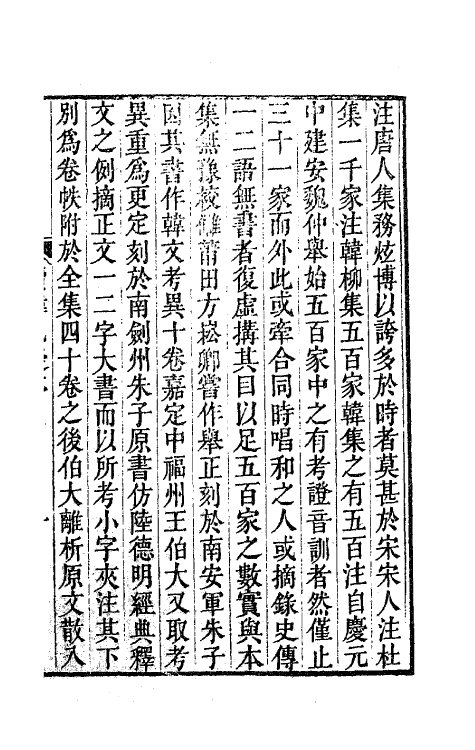 注唐人集務炫博以誇多於時者莫甚於宋宋人注杜
集一千家注韓柳集五百家韓集之有五百注自慶元
中建安魏仲舉始五百家中之有考證音訓者然僅止
三十一家而外此或牽合同時唱和之人或摘錄史傳
一二語無書者復虛搆其目以足五百家之數實與本
集無豫挍讎莆田方崧卿嘗作舉正刻於南安軍朱子
因其書作韓文考異十卷嘉定中福州王伯大又取考
異重為更定刻於南劍州朱子原書仿陸德明經典釋
文之例摘正文一二字大書而以所考小字夾注其下
別為卷帙附於全集四十卷之後伯大離析原文散入